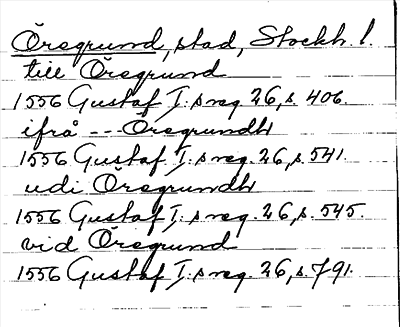 Öregrund, stad, Stockh. l.
till Öregrund
1556 Gustaf I:s reg. 26, s. 406.
ifrå --- Öregrundh
1556 Gustaf I:s reg. 26, s. 541.
udi Öregrundh
1556 Gustaf I:s reg. 26, s. 545.
vid Öregrund
1556 Gustaf I:s reg. 26, s. 791.